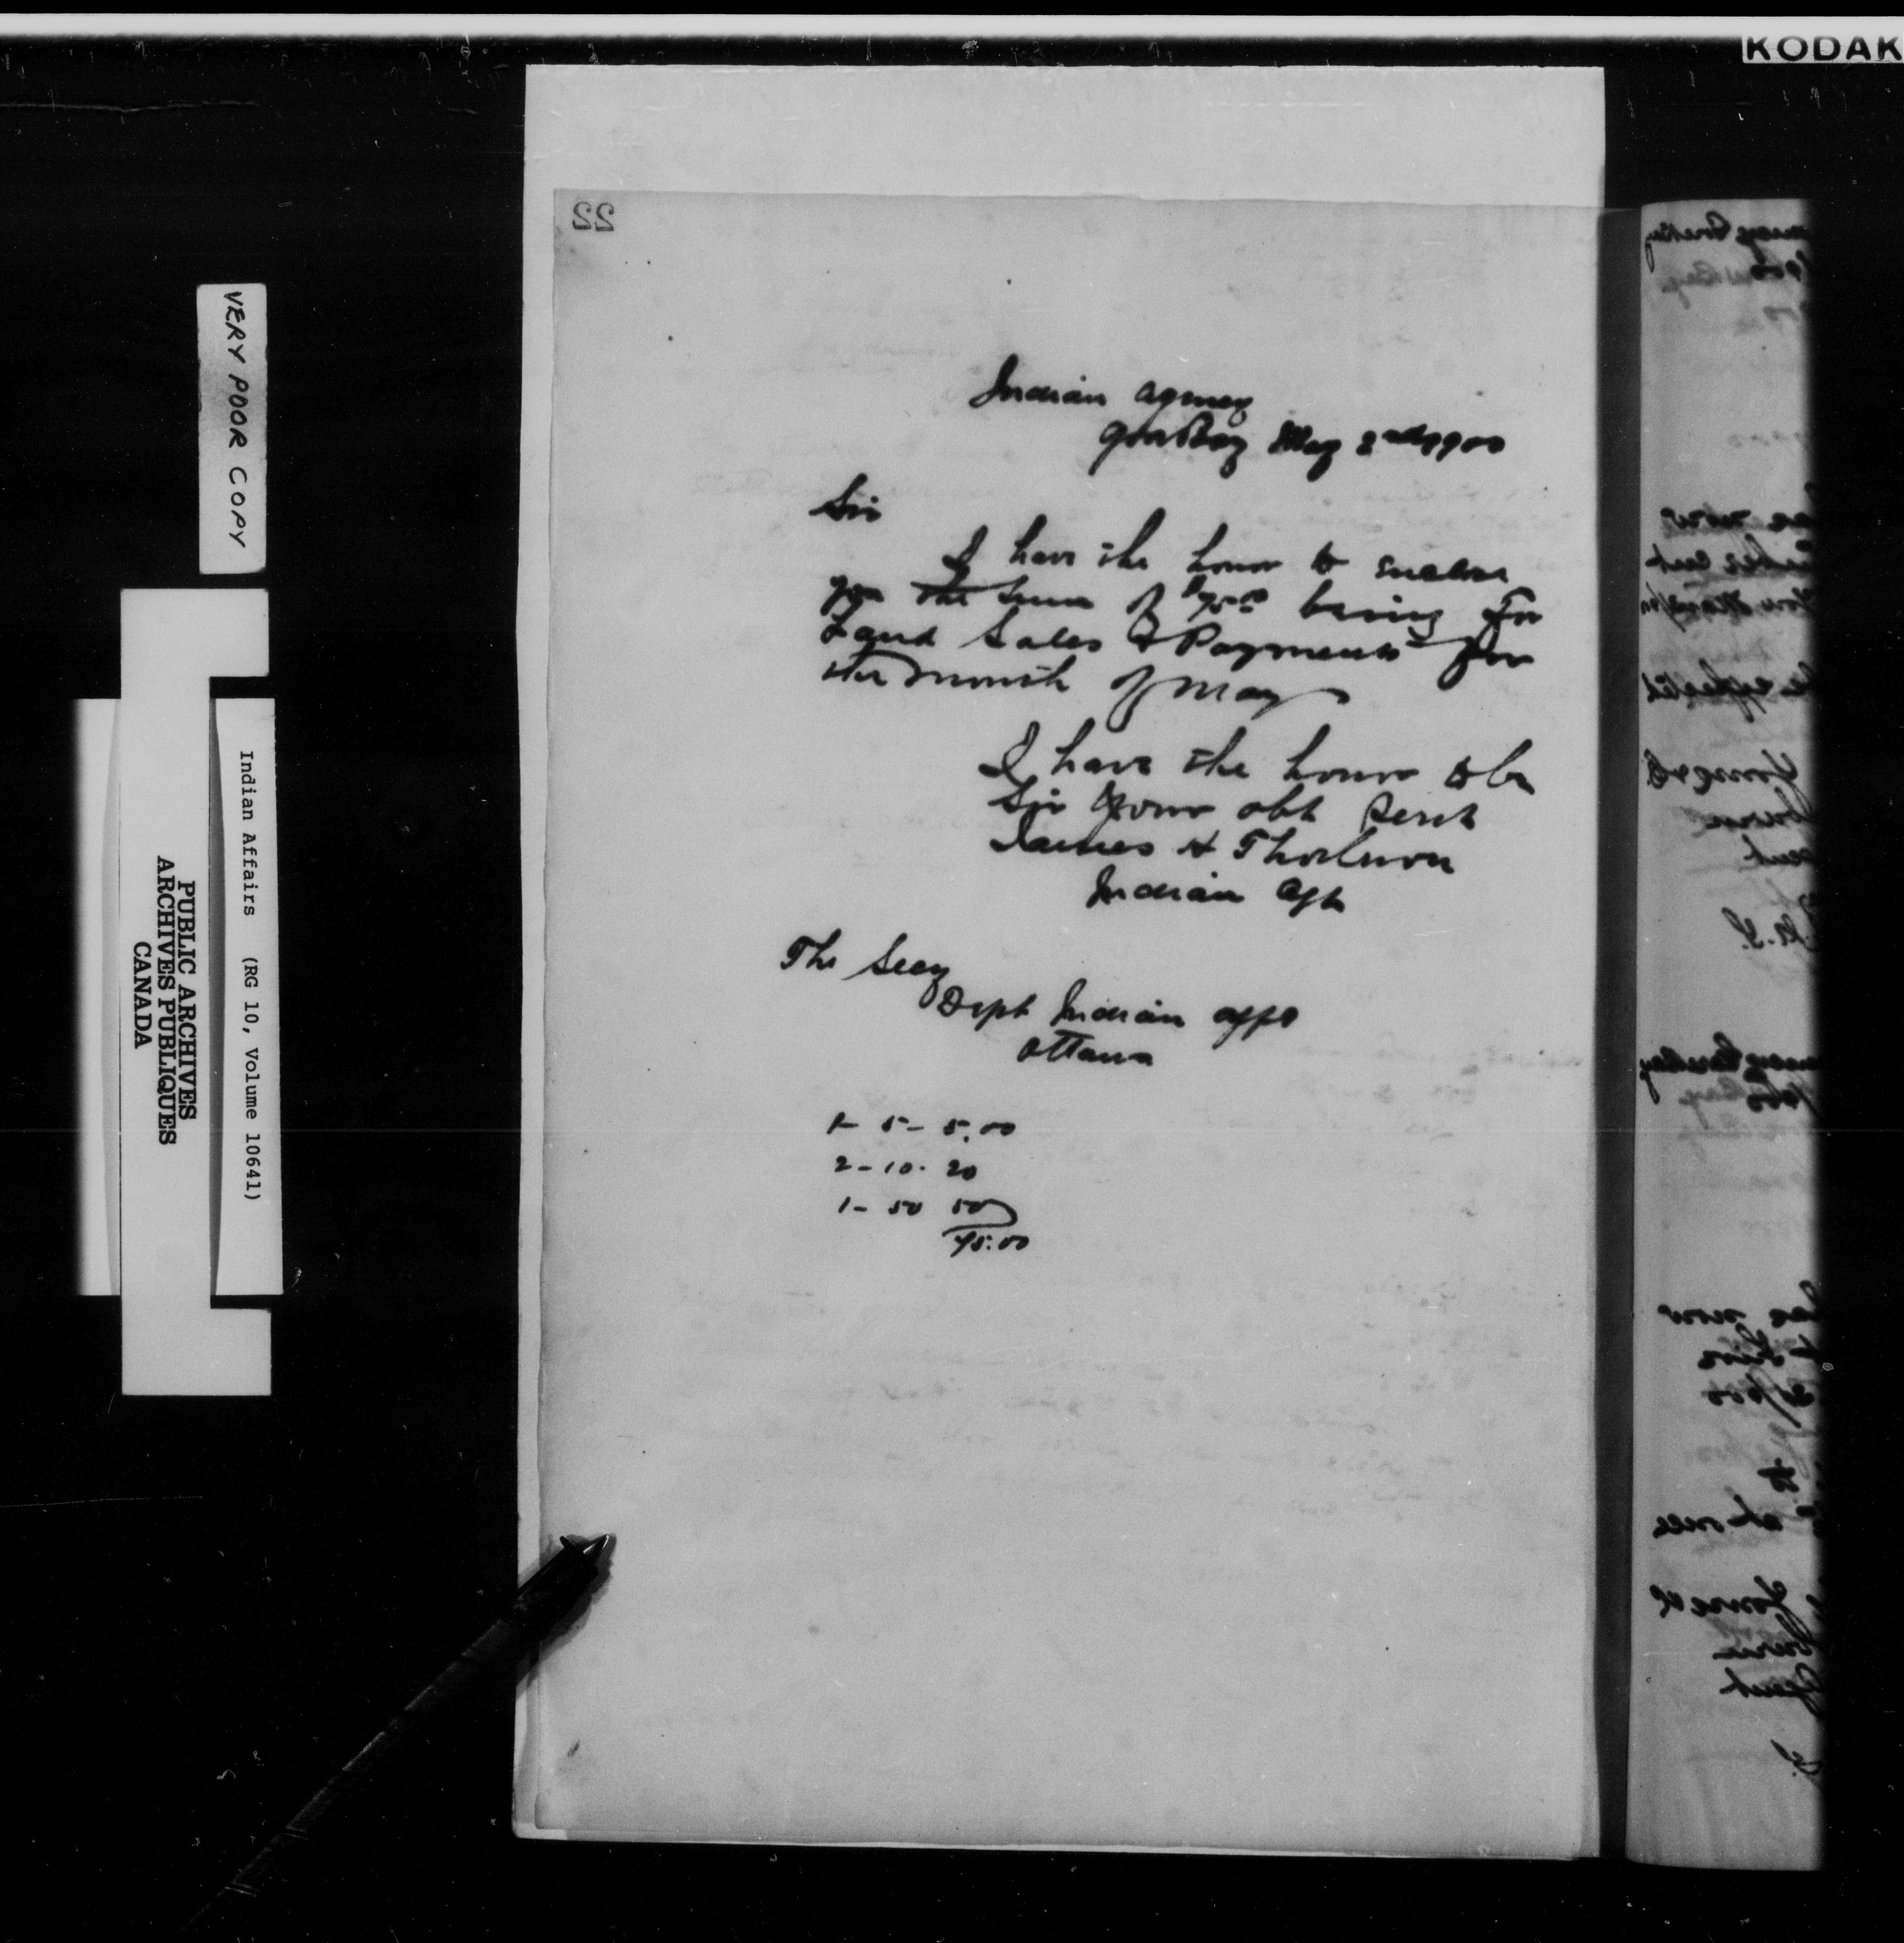 KODAK
22
Indian Agency
Gore Bay May 2nd 1900
Sir
I have the honor to enclose
you the sum of $75.00 being for
Land Sales & Payments for
the month of May
I have the honor to be
Sir your obt Servt
James H Thorburn
Indian Agt
The Secy
Dept Indian Affs
Ottawa
1- 5- 5.00
2-10. 20
1- 50 50
75.00
VERY POOR COPY
Indian Affairs (RG 10, Volume 10641)
PUBLIC ARCHIVES
ARCHIVES PUBLIQUES
CANADA